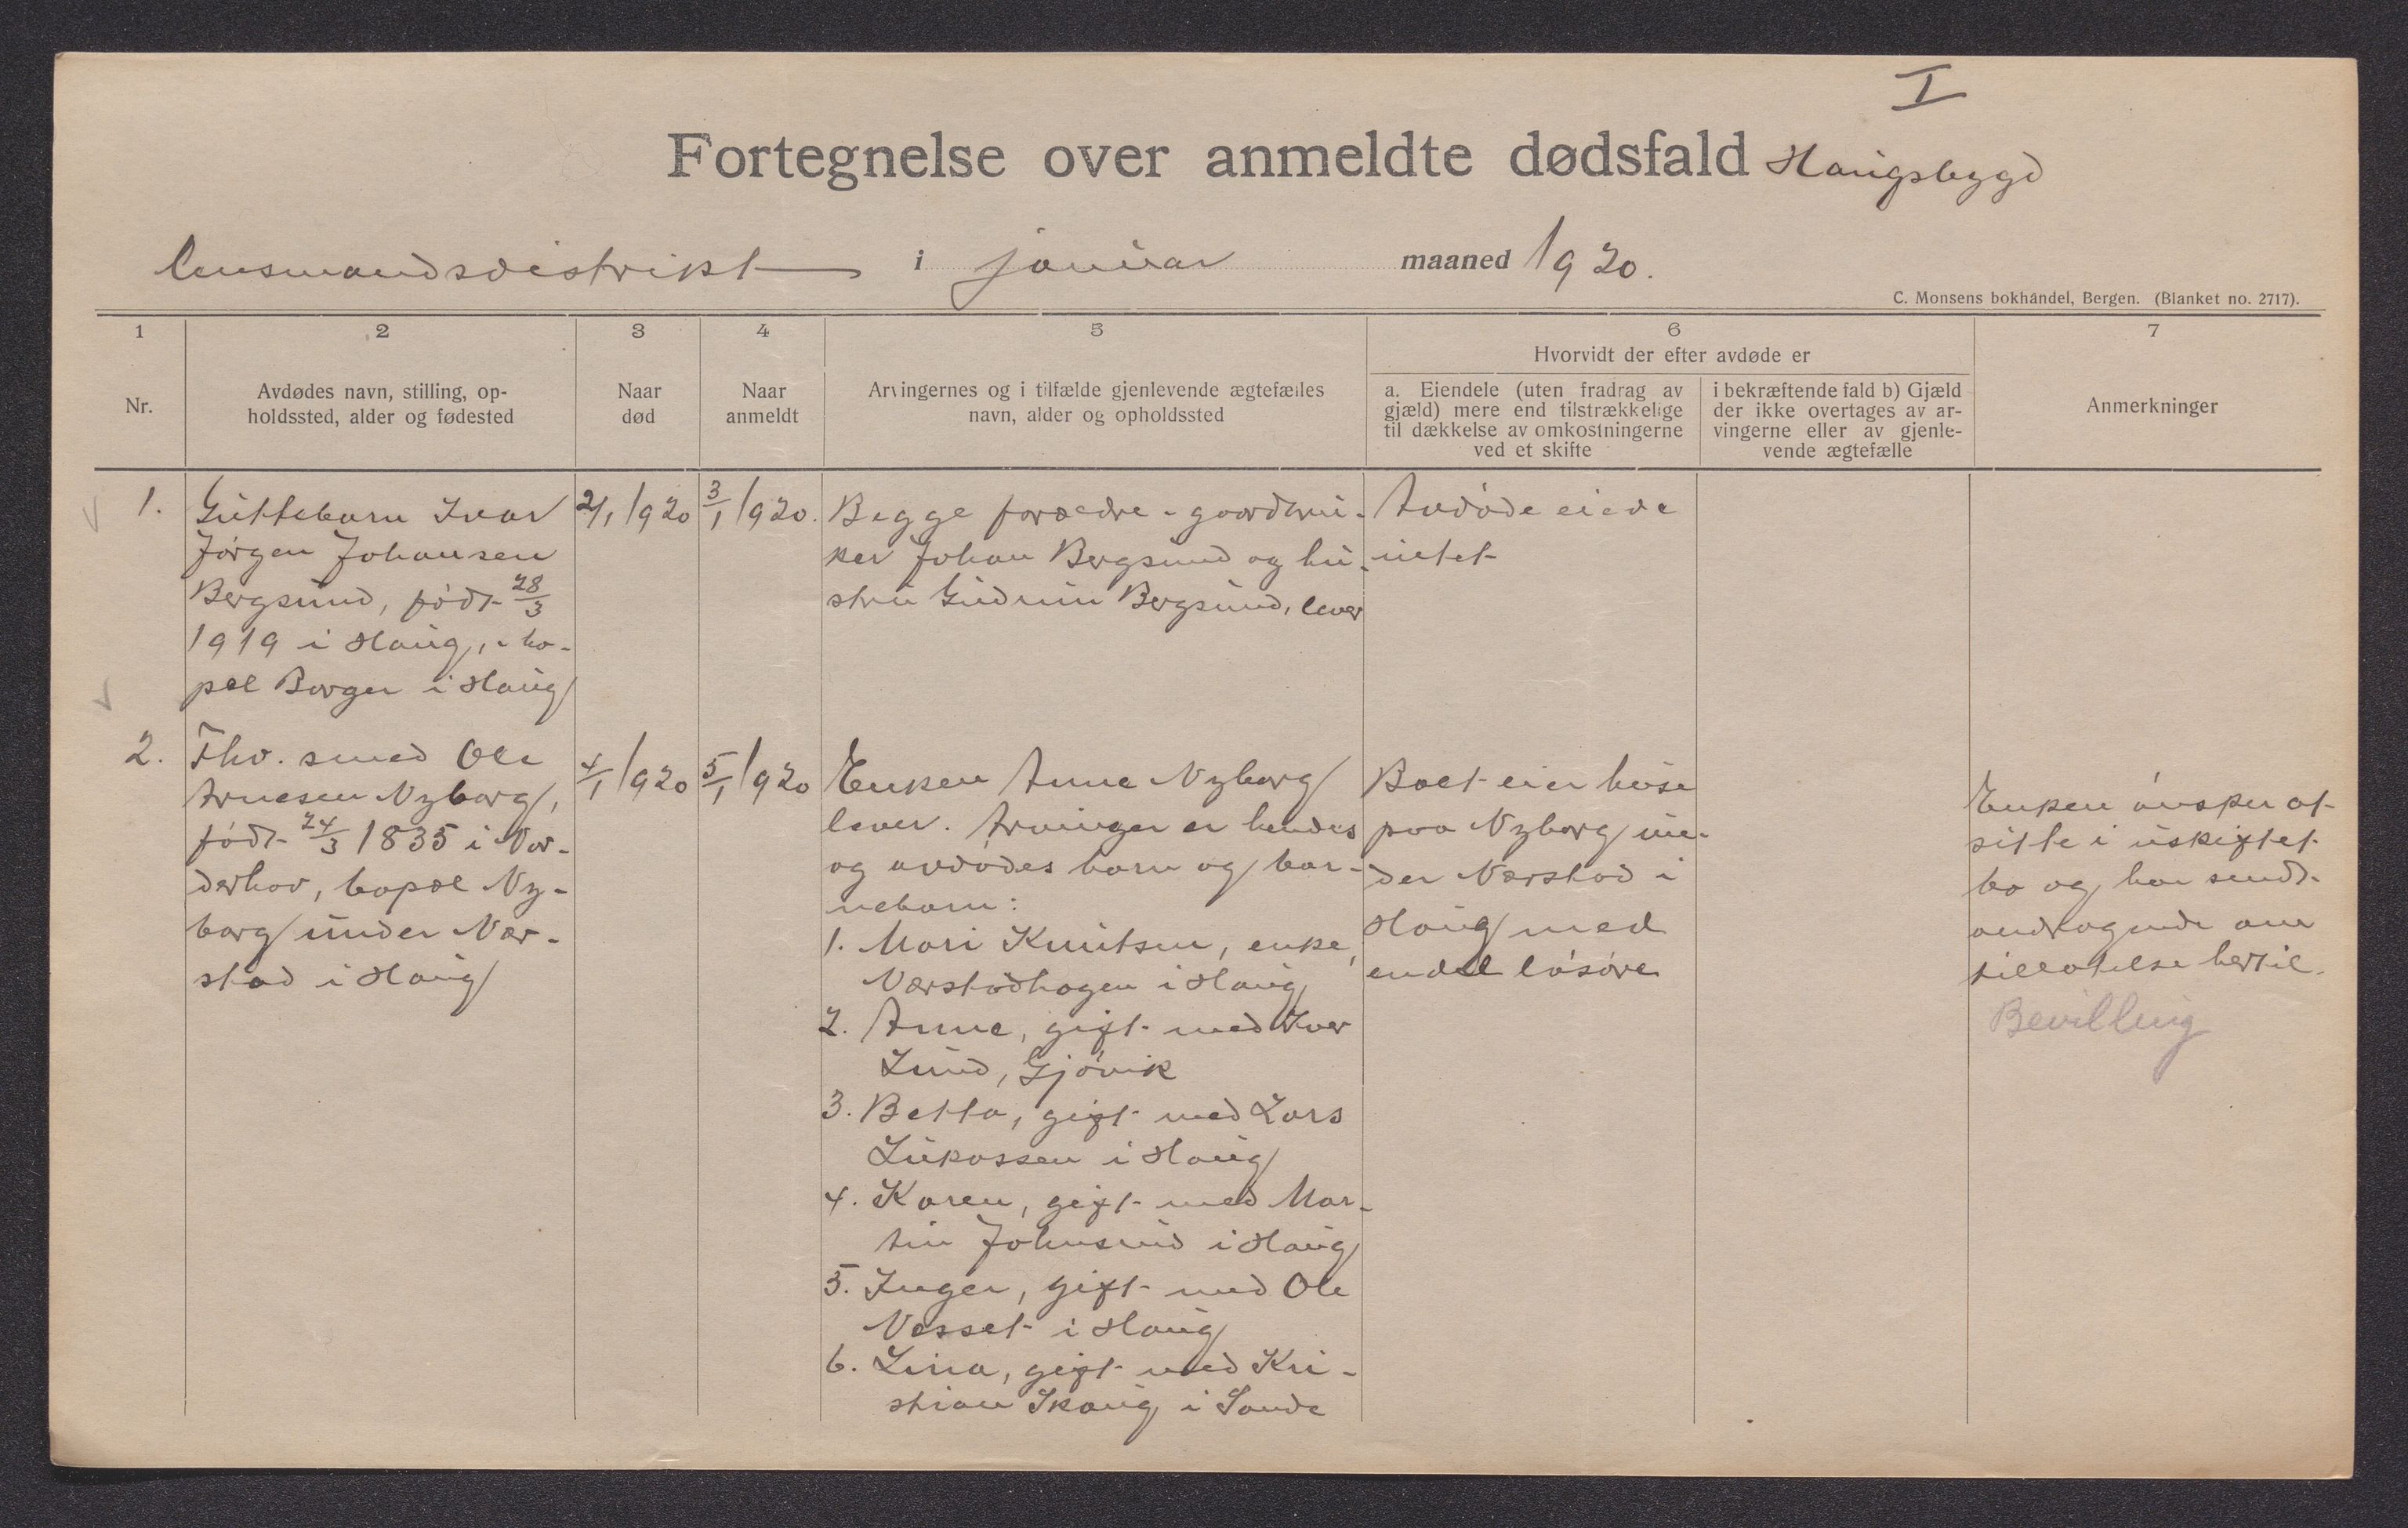 I
Fortegnelse over anmeldte dødsfald Haugsbygd
lensmandsdistrikt i januar maaned 1920.
C. Monsens bokhandel, Bergen. (Blanket no. 2717).
1 2 3 4 5 6 7
Hvorvidt der efter avdøde er
Nr.
Avdødes navn, stilling, op-
holdssted, alder og fødested
Naar
død
Naar
anmeldt
Arvingernes og i tilfælde gjenlevende ægtefælles
navn, alder og opholdssted
a. Eiendele (uten fradrag av
gjæld) mere end tilstrækkelige
til dækkelse av omkostningerne
ved et skifte
i bekræftende fald b) Gjæld
der ikke overtages av ar-
vingerne eller av gjenle-
vende ægtefælle
Anmerkninger
1.
Guttebarn Ivar
Jørgen Johansen
Bergsund, født 28/3
1919 i Haug, - bo-
pæl Borger i Haug
2/1 1920
3/1 1920.
Begge forældre - gaardbru-
ker Johan Bergsund og hu-
stru Gudrun Bergsund, lever
Avdøde eiede
intet
2.
Fhv. smed Ole
Arnesen Nyborg,
født 24/3 1835 i Nor-
derhov, bopæl Ny-
borg under Vær-
stad i Haug
4/1 1920
5/1 1920
Enken Anne Nyborg
lever. Arvinger er hendes
og avdødes barn og bar-
nebarn:
1. Mari Knutsen, enke,
Værstadhagen i Haug
2. Anne, gift med Iver
Lund, Gjøvik
3. Betta, gift med Lars
Lukassen i Haug
4. Karen, gift med Mar-
tin Johnsrud i Haug
5. Inger, gift med Ole
Vesset i Haug
6. Lina, gift med Kri-
stian Skaug i Sande
Boet eier huse
paa Nyborg un-
der Værstad i
Haug med
endel løsøre
Enken ønsker at
sitte i uskiftet
bo og har sendt
andragende om
tillatelse hertil.
Bevilling